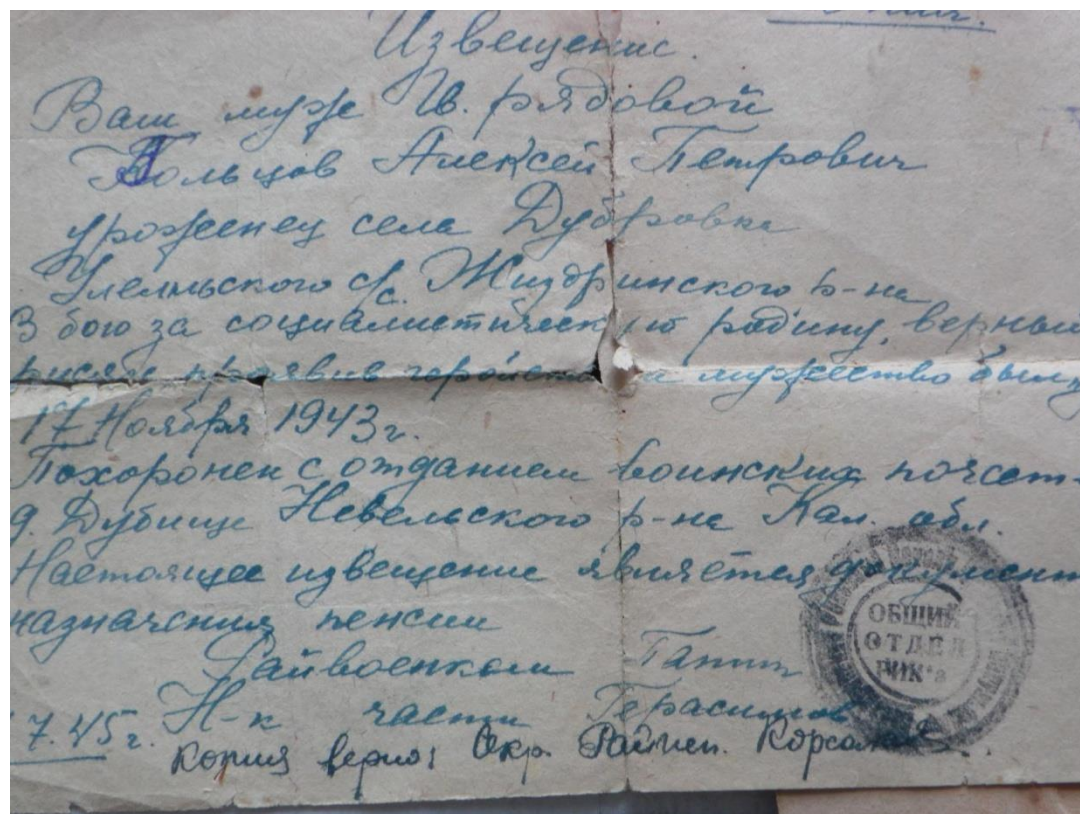 Извещение.
Ваш муж Гв. рядовой
Гольцов Алексей Петрович
уроженец села Дубровка
Улемльского с/с. Жиздринского р-на
В бою за социалистическую родину, верный
присяге проявив геройство и мужество был у
17 Ноября 1943 г.
Похоронен с отданием воинских почест-
д. Дубище Невельского р-на Кал. обл.
Настоящее извещение является документ
назначения пенсии
Райвоенком
Н-к части Герасимов
7.45 г.
Копия верна: Окр. Райисп.
ОБЩИЙ
ОТДЕЛ
РИК'а